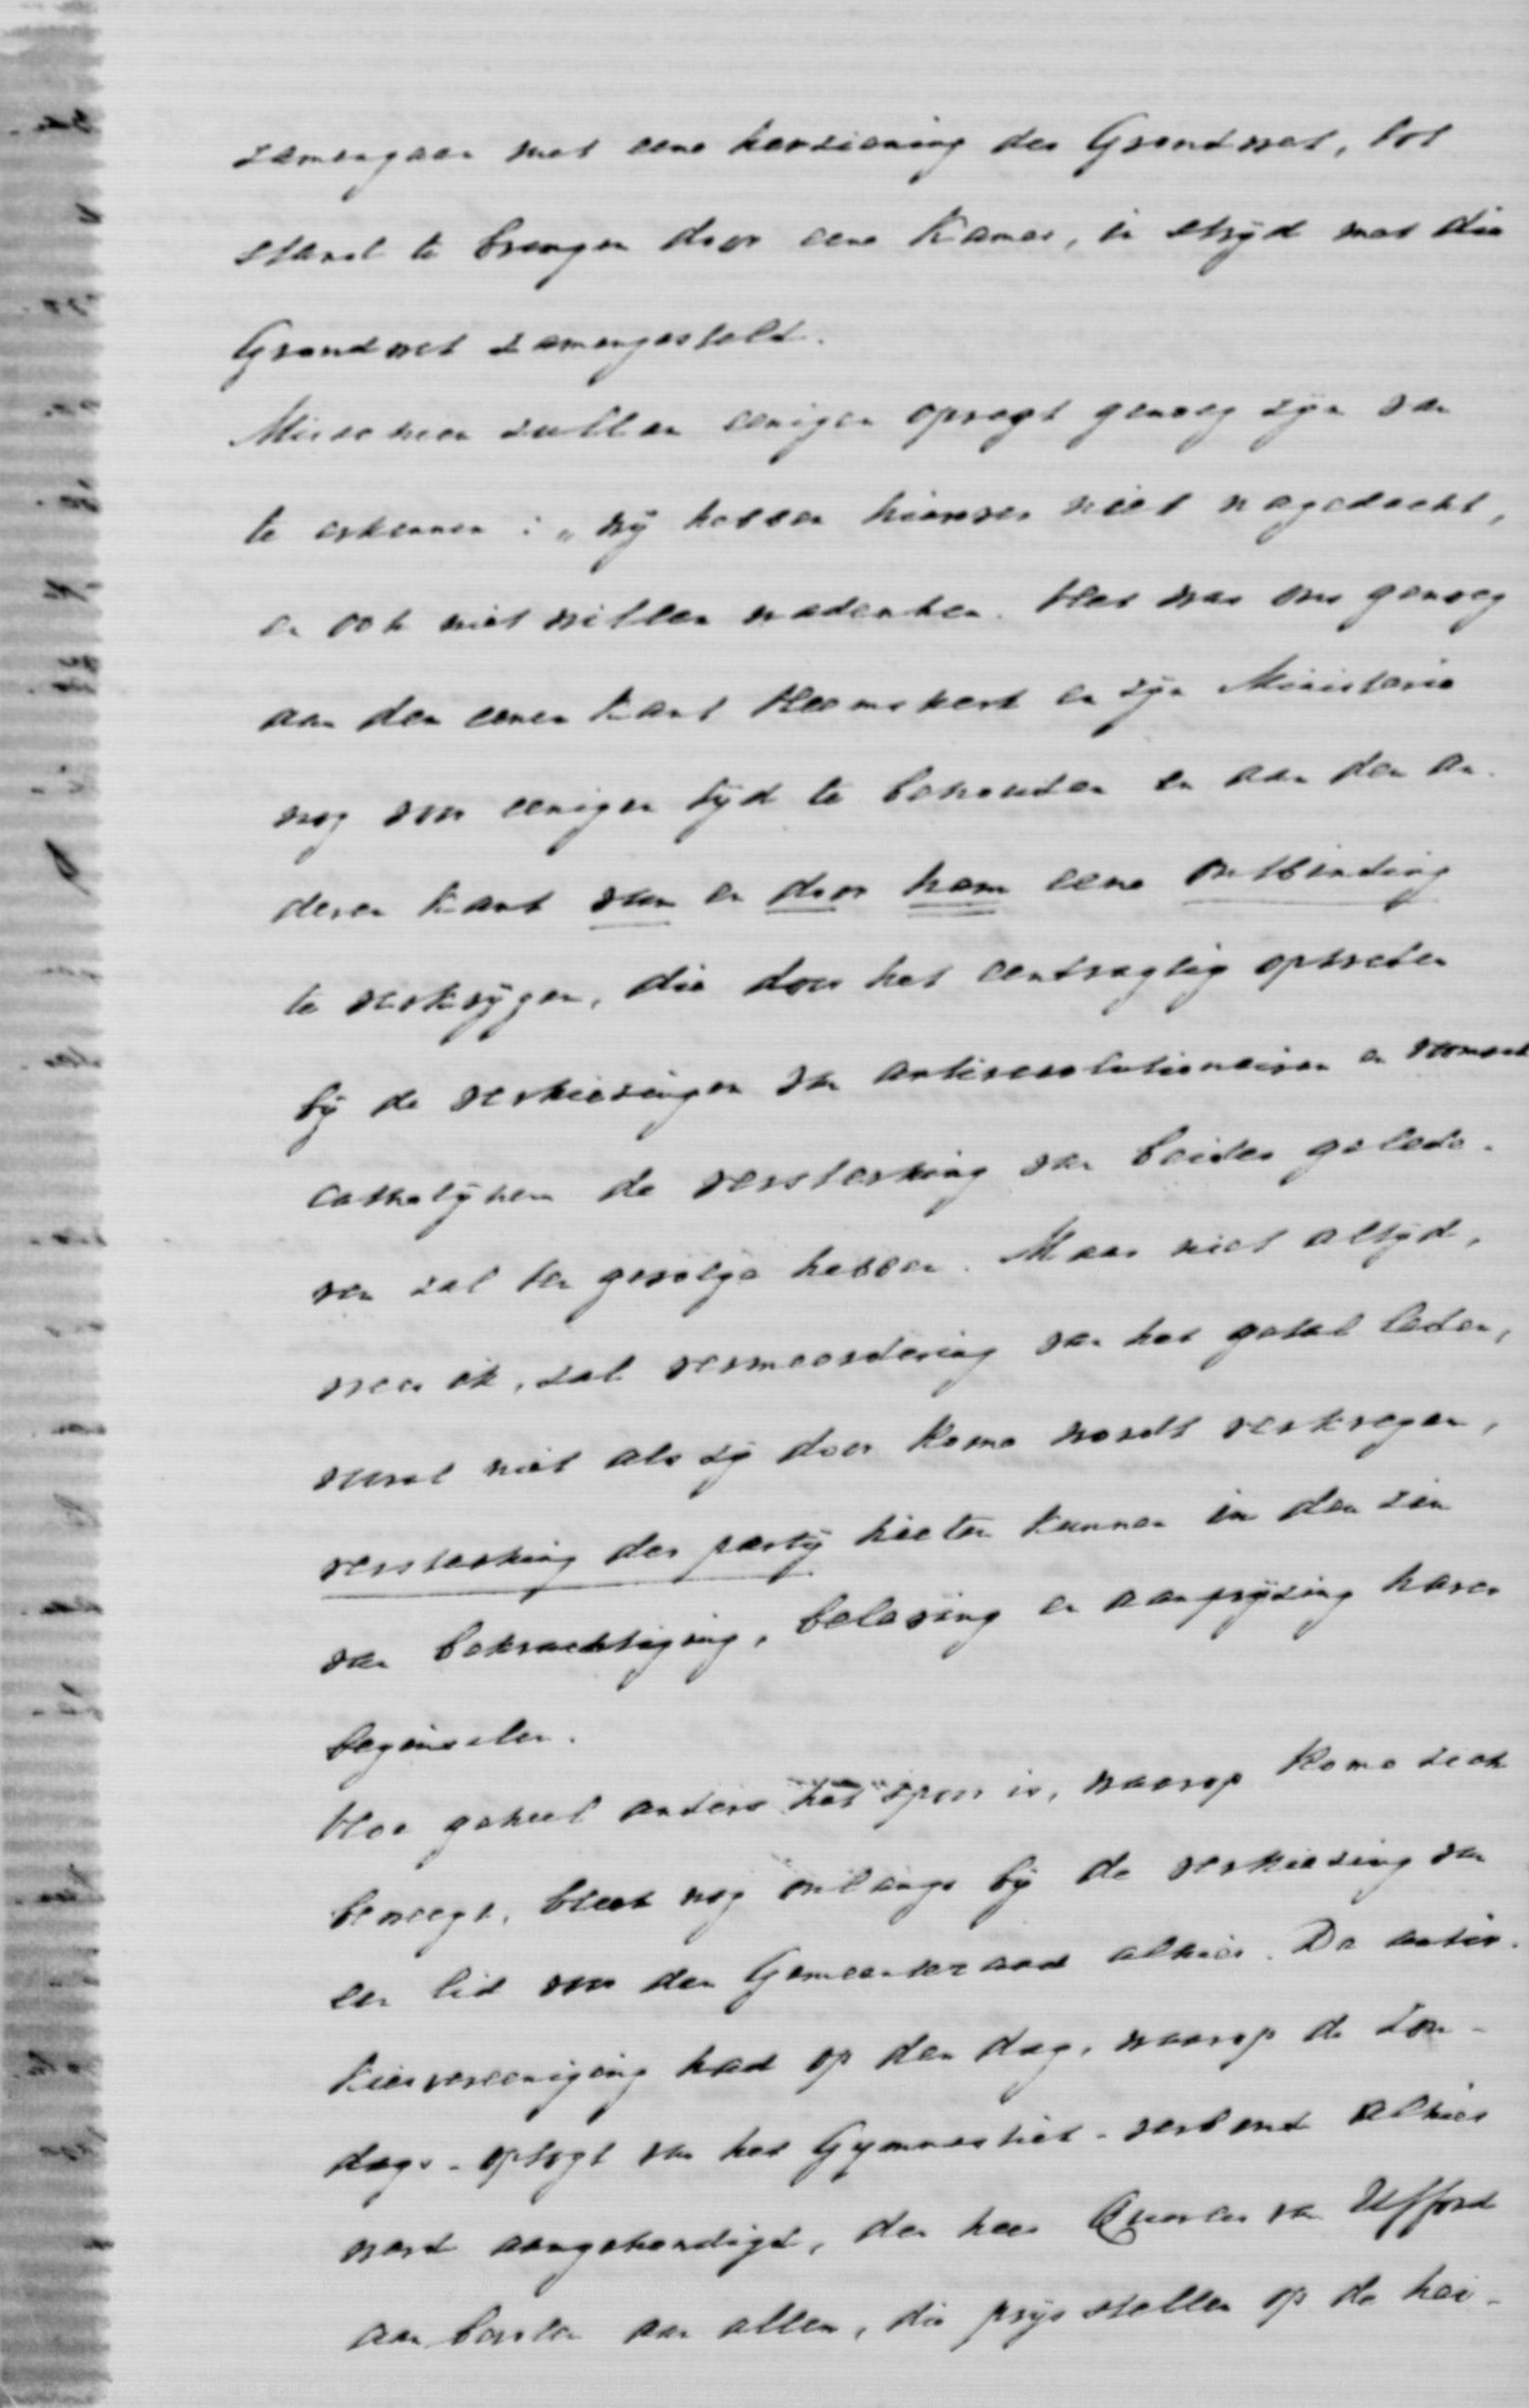 zamengaan met eene herziening der Grondwet, tot
stand te brengen door eene Kamer, in stryd met die
Grondwet zamengesteld.
Misschien zullen eenigen opregt genoeg zyn om
te erkennen: „wy hebben hierover niet nagedacht,
en ook niet willen nadenken. Het was ons genoeg
aan den eenen kant Heemskerk en zyn Ministerie
nog voor eenigen tyd te behouden en aan den an-
deren kant van en door hem eene ontbinding
te verkrygen, die door het eendragtig optreden
by de verkiezingen van antirevolutionairen en roomsch
catholyken de versterking van beider gelede-
ren zal ten gevolge hebben. Maar niet altyd,
vrees ik, zal vermeerdering van het getal leden,
vooral niet als zy door Rome wordt verkregen,
versterking der party heeten kunnen in den zin
van bekrachtiging, beleving en aanpryzing harer
beginselen.
Hoe geheel anders het spoor is, waarop Rome zich
beweegt, bleek nog onlangs by de verkiezing van
een lid voor den Gemeenteraad alhier. De antir.
kiesvereeniging had op den dag, waarop de Zon-
dags-optogt van het Gymnastiek-verbond alhier
werd aangekondigd, den heer Quarles van Ufford
aanbevolen aan allen, die prys stellen op de hei-